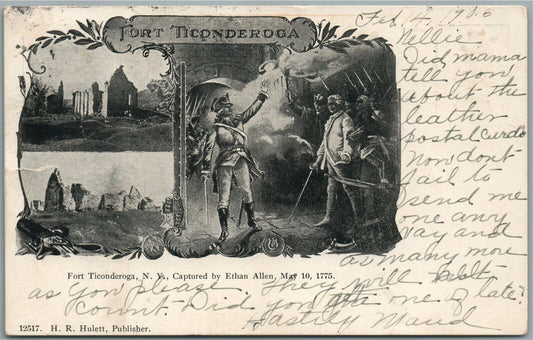 FORT TICONDEROGA
Feb. 4, 1906
Nellie
Did mama
tell you
about the
leather
postal cards
Now dont
fail to
send me
one any
way and
as many more
as you please. They will
count. Did you me one of late?
Hastily Maud
FORT TICONDEROGA, N. Y., CAPTURED BY ETHAN ALLEN, MAY 10, 1775.
12517. H. R. Hulett, Publisher.